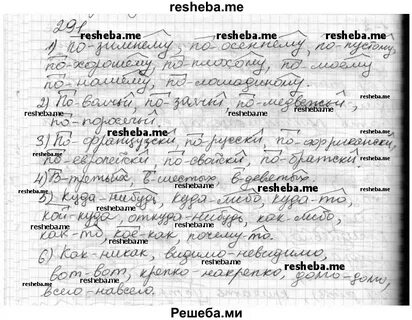 resheba.me
291
1) По-зимнему, по-осеннему, по-пустому,
по-хорошему, по-плохому, по-моему
по-нашему, по-лошадиному.
2) По-волчьи, по-заячьи, по-медвежьи,
по-поросячьи.
3) По-французски, по-русски, по-африкански,
по-европейски, по-свойски, по-братски.
4) В-третьих, в-шестых, в-девятых.
5) Куда-нибудь, куда-либо, куда-то,
кой-куда, откуда-нибудь, как-либо,
как-то, кое-как, почему-то.
6) Как-никак, видимо-невидимо,
вот-вот, крепко-накрепко, долго-долго,
всего-навсего.
resheba.me
resheba.me
resheba.me
resheba.me
resheba.me
resheba.me
resheba.me
resheba.me
resheba.me
resheba.me
Решеба.ми